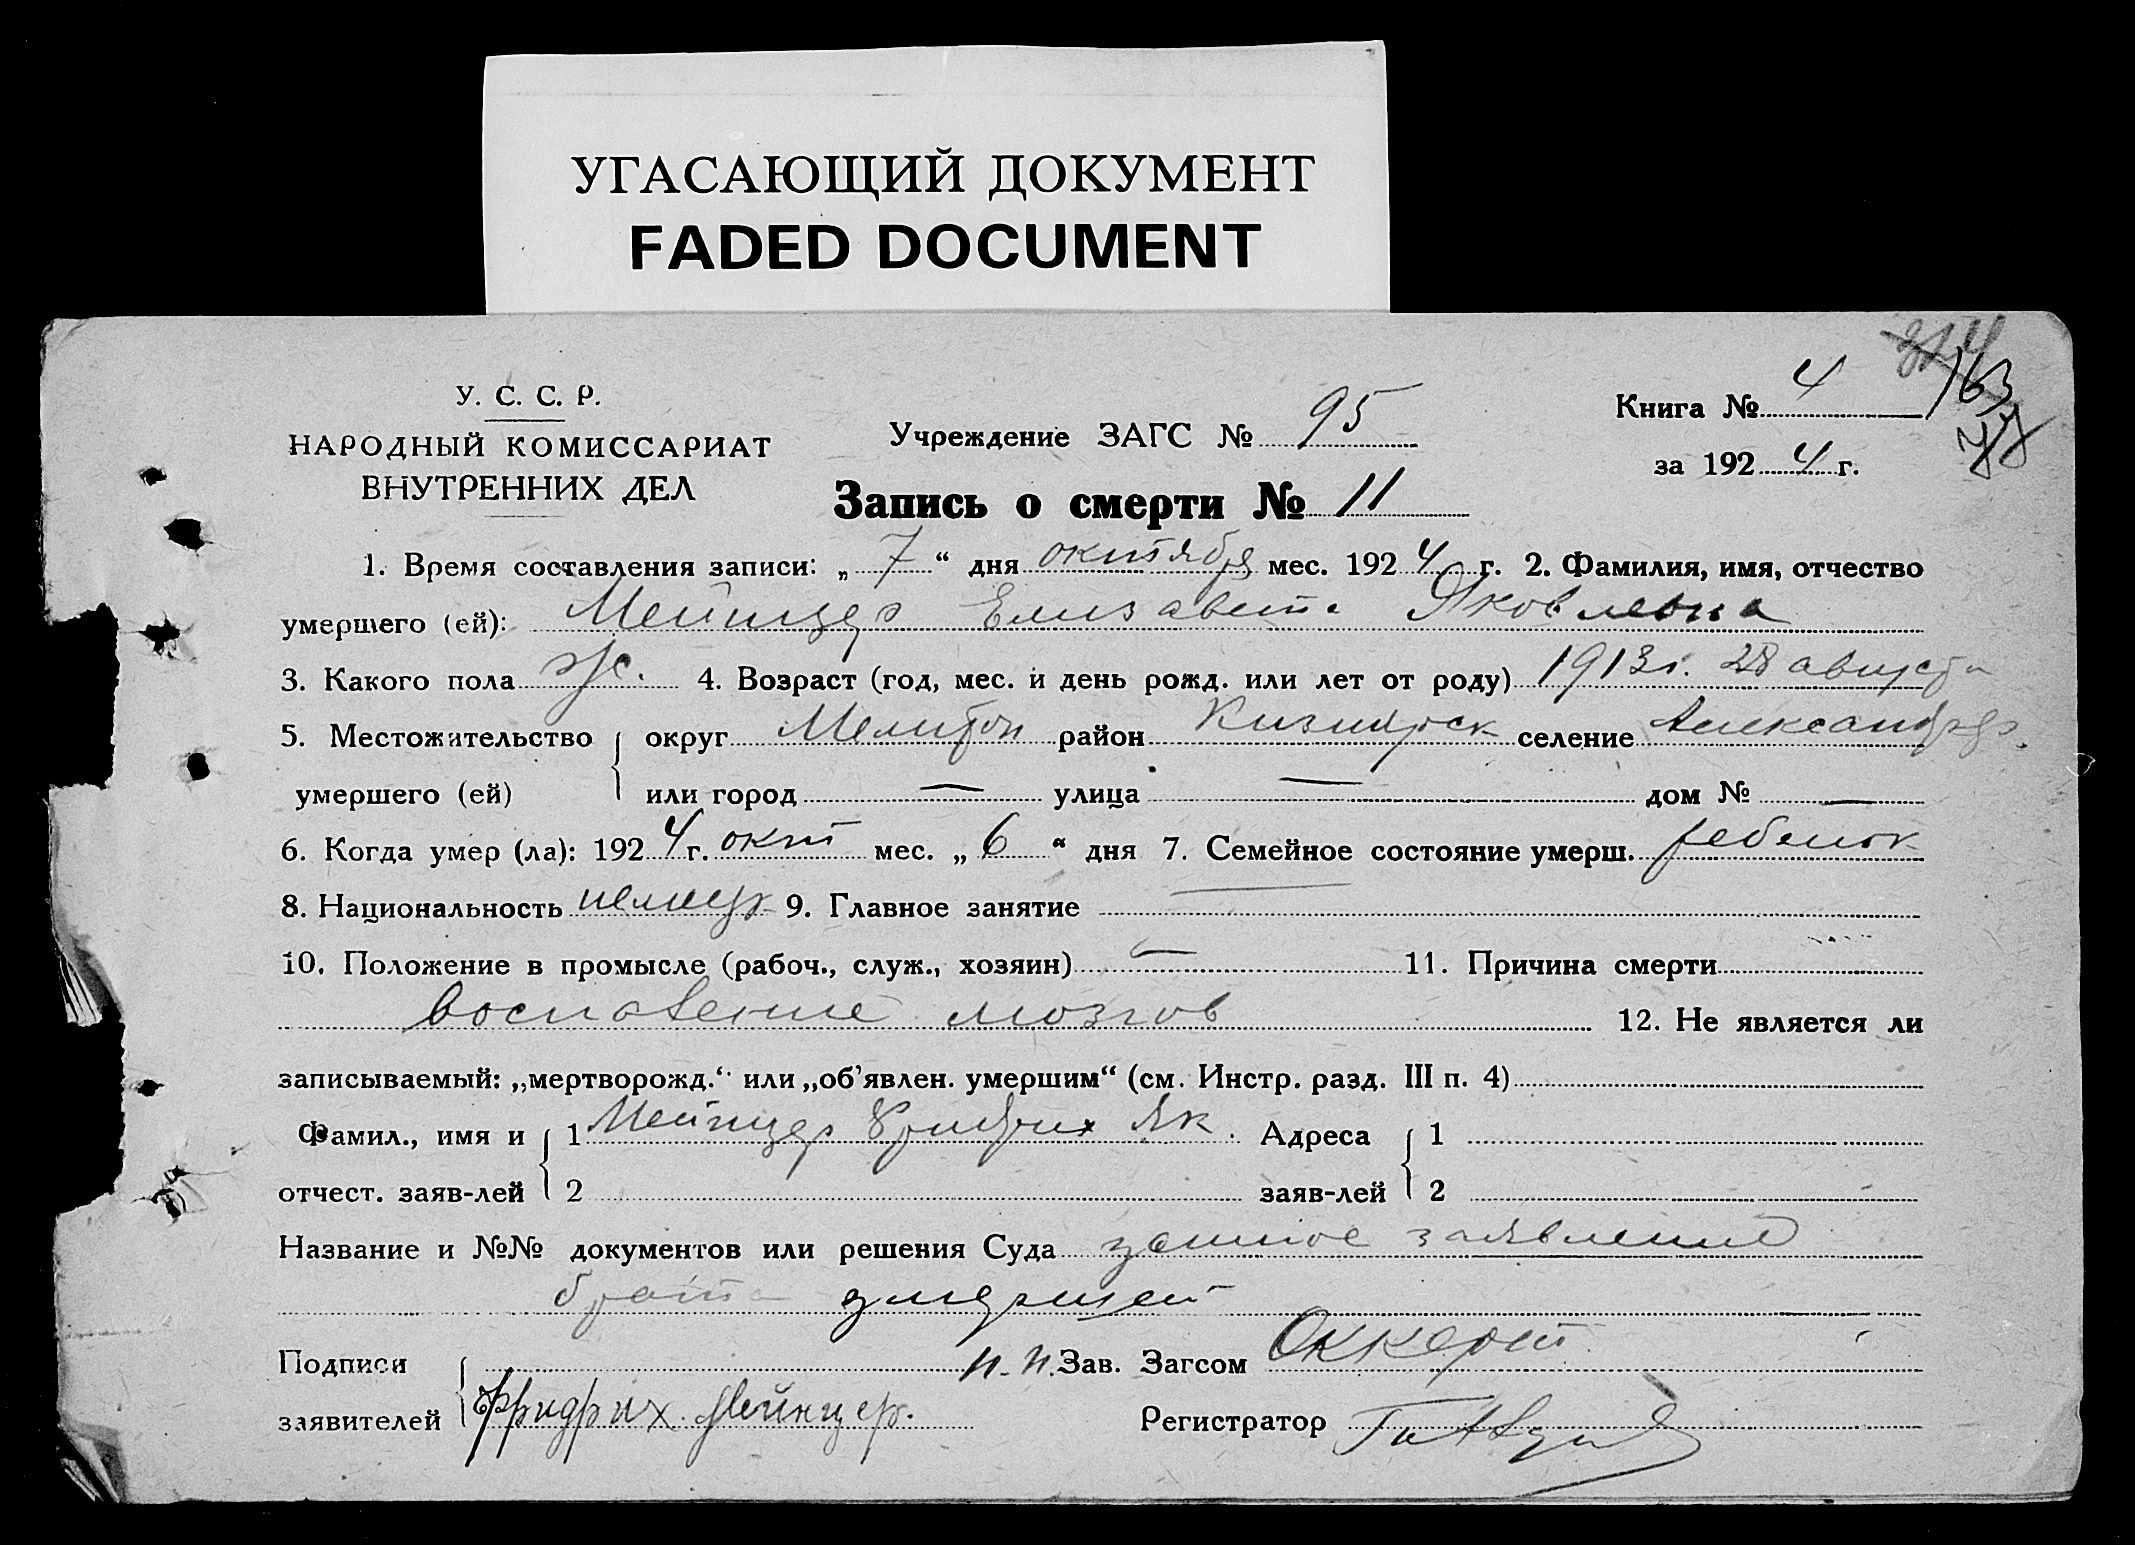 УГАСАЮЩИЙ ДОКУМЕНТ
FADED DOCUMENT
314
163
У. С. С. Р.
НАРОДНЫЙ КОМИССАРИАТ
ВНУТРЕННИХ ДЕЛ
Учреждение ЗАГС № 95
Книга № 4
за 1924 г.
Запись о смерти № 11
1. Время составления записи: „7“ дня октября мес. 1924 г. 2. Фамилия, имя, отчество
умершего (ей): Мейнцер Елизавета Яковлевна
3. Какого пола ж. 4. Возраст (год, мес. и день рожд. или лет от роду) 1913 г. 28 августа
5. Местожительство округ Мелитоп район Кизиярск селение Александрф.
умершего (ей) или город — улица — дом № —
6. Когда умер (ла): 1924 г. окт мес. „6“ дня 7. Семейное состояние умерш. ребенок
8. Национальность немец 9. Главное занятие —
10. Положение в промысле (рабоч., служ., хозяин) — 11. Причина смерти
воспаление мозгов 12. Не является ли
записываемый: „мертворожд.“ или „об’явлен. умершим“ (см. Инстр. разд. III п. 4)
Фамил., имя и 1 Мейнцер Фридрих Як. Адреса 1
отчест. заяв-лей 2 заяв-лей 2
Название и №№ документов или решения Суда устное заявление
брата умершей
Подписи п. п. Зав. Загсом Оккерт
заявителей Фридрих Мейнцер. Регистратор